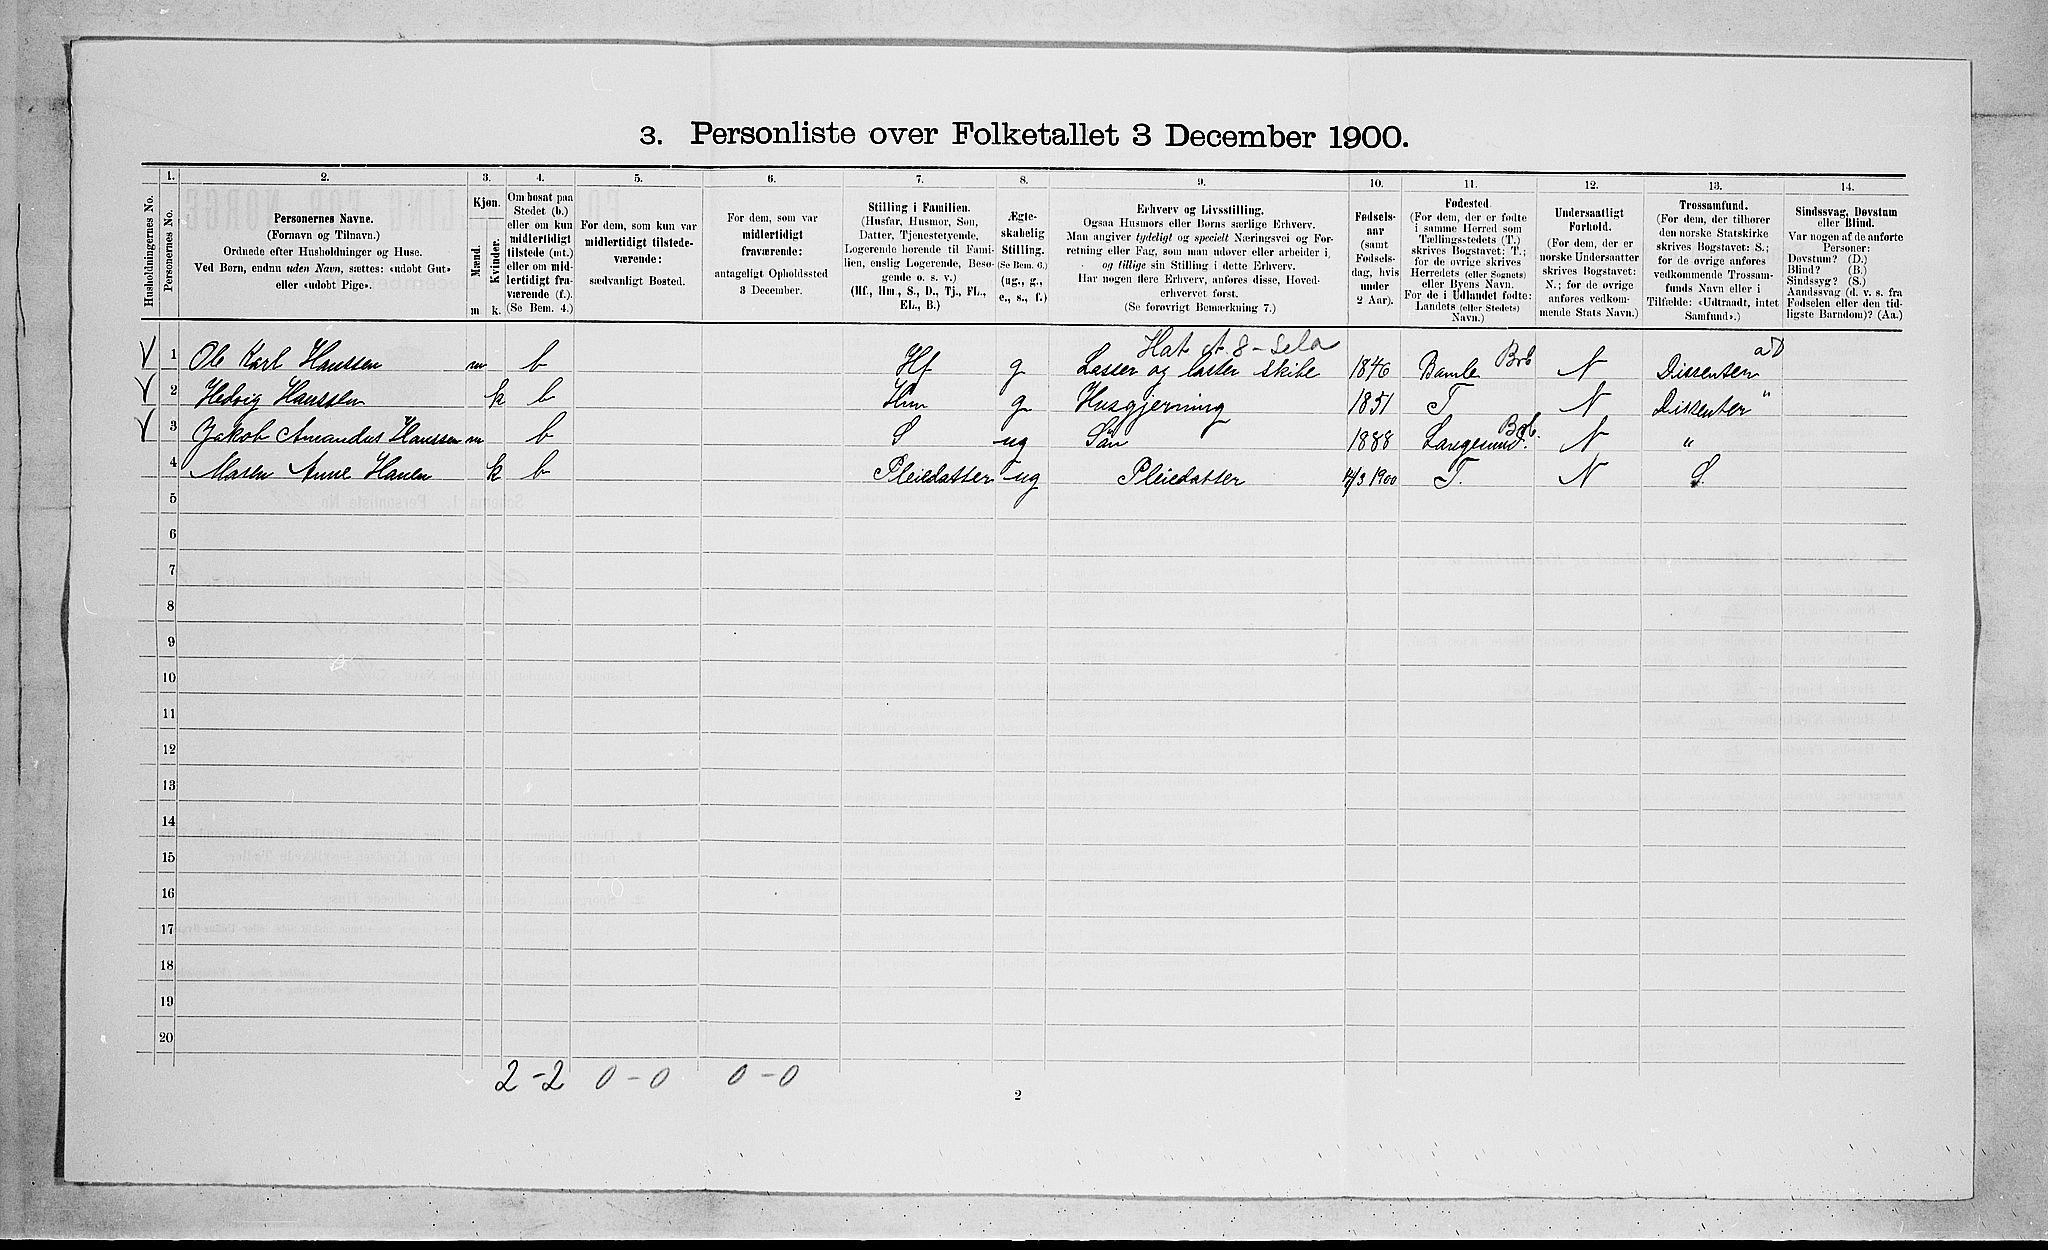 3. Personliste over Folketallet 3 December 1900.
Husholdningernes No.
1.
Personernes No.
2.
Personernes Navne.
(Fornavn og Tilnavn.)
Ordnede efter Husholdninger og Huse.
Ved Børn, endnu uden Navn, sættes: «udøbt Gut»
eller «udøbt Pige».
3.
Kjøn.
Mænd.
Kvinder.
m k.
4.
Om bosat paa
Stedet (b.)
eller om kun
midlertidigt
tilstede (mt.)
eller om mid-
lertidigt fra-
værende (f.).
(Se Bem. 4.)
5.
For dem, som kun var
midlertidigt tilstede-
værende:
sædvanligt Bosted.
6.
For dem, som var
midlertidigt
fraværende:
antageligt Opholdssted
3 December.
7.
Stilling i Familien.
(Husfar, Husmor, Søn,
Datter, Tjenestetyende,
Logerende hørende til Fami-
lien, enslig Logerende, Besø-
gende o. s. v.)
(Hf., Hm., S., D., Tj., FL.,
EL., B.)
8.
Ægte-
skabelig
Stilling.
(Se Bem. 6.)
(ug., g.,
e., s., f.)
9.
Erhverv og Livsstilling.
Ogsaa Husmors eller Børns særlige Erhverv.
Man angiver tydeligt og specielt Næringsvei og For-
retning eller Fag, som man udøver eller arbeider i,
og tillige sin Stilling i dette Erhverv.
Har nogen flere Erhverv, anføres disse, Hoved-
erhvervet først.
(Se forøvrigt Bemærkning 7.)
10.
Fødsels-
aar
(samt
Fødsels-
dag, hvis
under
2 Aar).
11.
Fødested.
(For dem, der er fødte
i samme Herred som
Tællingsstedets (T.)
skrives Bogstavet: T.;
for de øvrige skrives
Herredets (eller Sognets)
eller Byens Navn.
For de i Udlandet fødte:
Landets (eller Stedets)
Navn.)
12.
Undersaatligt
Forhold.
(For dem, der er
norske Undersaatter
skrives Bogstavet:
N.; for de øvrige
anføres vedkom-
mende Stats Navn.)
13.
Trossamfund.
(For dem, der tilhører
den norske Statskirke
skrives Bogstavet: S.;
for de øvrige anføres
vedkommende Trossam-
funds Navn eller i
Tilfælde: «Udtraadt, intet
Samfund».)
14.
Sindssvag, Døvstum
eller Blind.
Var nogen af de anførte
Personer:
Døvstum? (D.)
Blind? (B.)
Sindssyg? (S.)
Aandssvag (d. v. s. fra
Fødselen eller den tid-
ligste Barndom)? (Aa.)
1 Ole Karl Hanssen m b Hf g Losser og laster skibe 1846 Bamle N Dissenter
2 Hedvig Hanssen k b Hm g Husgjerning 1851 T N Dissenter "
3 Jakob Amandus Hanssen m b S ug Sön 1888 Langesund. N "
4 Maren Anne Hansen k b Pleiedatter ug Pleiedatter 1900 T. N S.
5
6
7
8
9
10
11
12
13
14
15
16
17
18
19
20
2-2 0-0 0-0
2